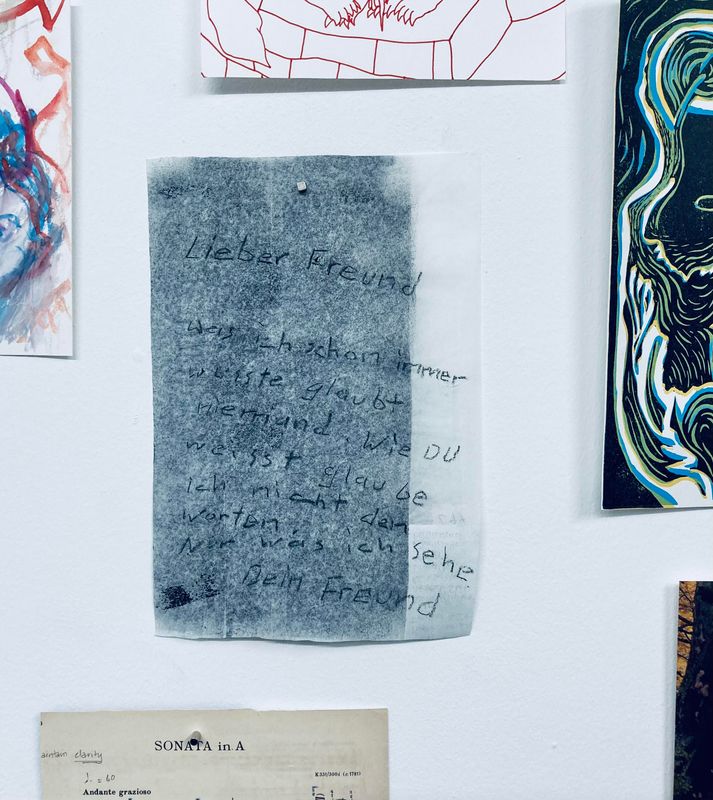 Lieber Freund
Was ich schon immer
wusste glaubt
niemand. Wie DU
weisst glaube
ich nicht den
Worten,
Nur was ich sehe
Dein Freund
SONATA in A
aintain clarity
= 60
K331/300i (c.1781)
Andante grazioso